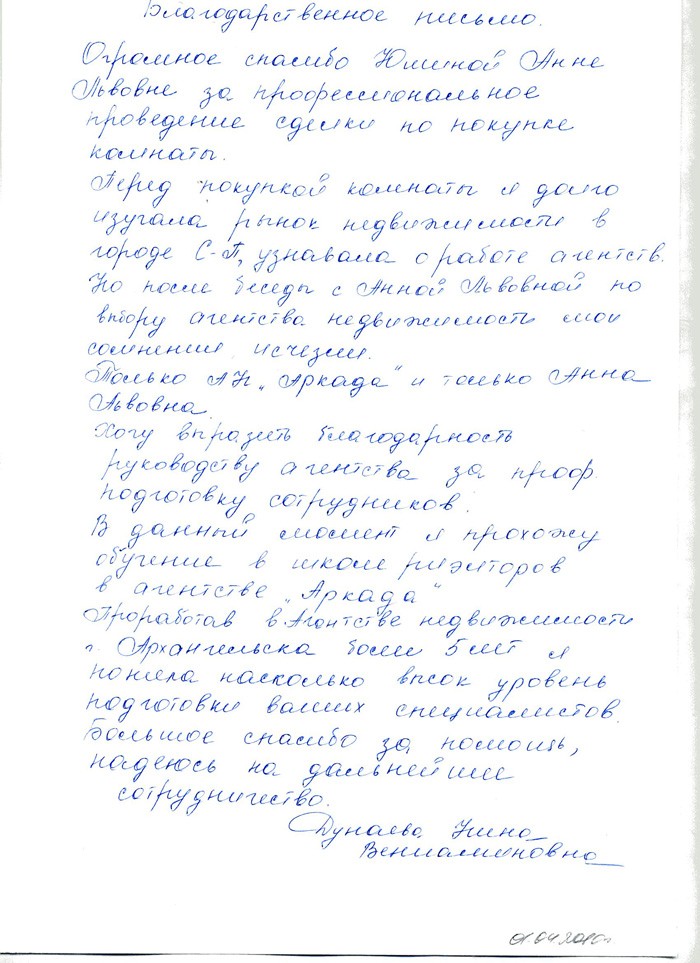 Благодарственное письмо.
Огромное спасибо Юшиной Анне
Львовне за профессиональное
проведение сделки по покупке
комнаты.
Перед покупкой комнаты я долго
изучала рынок недвижимости в
городе С-П, узнавала о работе агентств.
Но после беседы с Анной Львовной по
выбору агентства недвижимости мои
сомнения исчезли.
Только АН „Аркада“ и только Анна
Львовна.
Хочу выразить благодарность
руководству агентства за проф.
подготовку сотрудников.
В данный момент я прохожу
обучение в школе риэлторов
в агентстве „Аркада“
Проработав в Агентстве недвижимости
г. Архангельска более 5 лет я
поняла насколько высок уровень
подготовки ваших специалистов.
Большое спасибо за помощь,
надеюсь на дальнейшее
сотрудничество.
Дунаева Нина
Вениаминовна
01.04.2010г